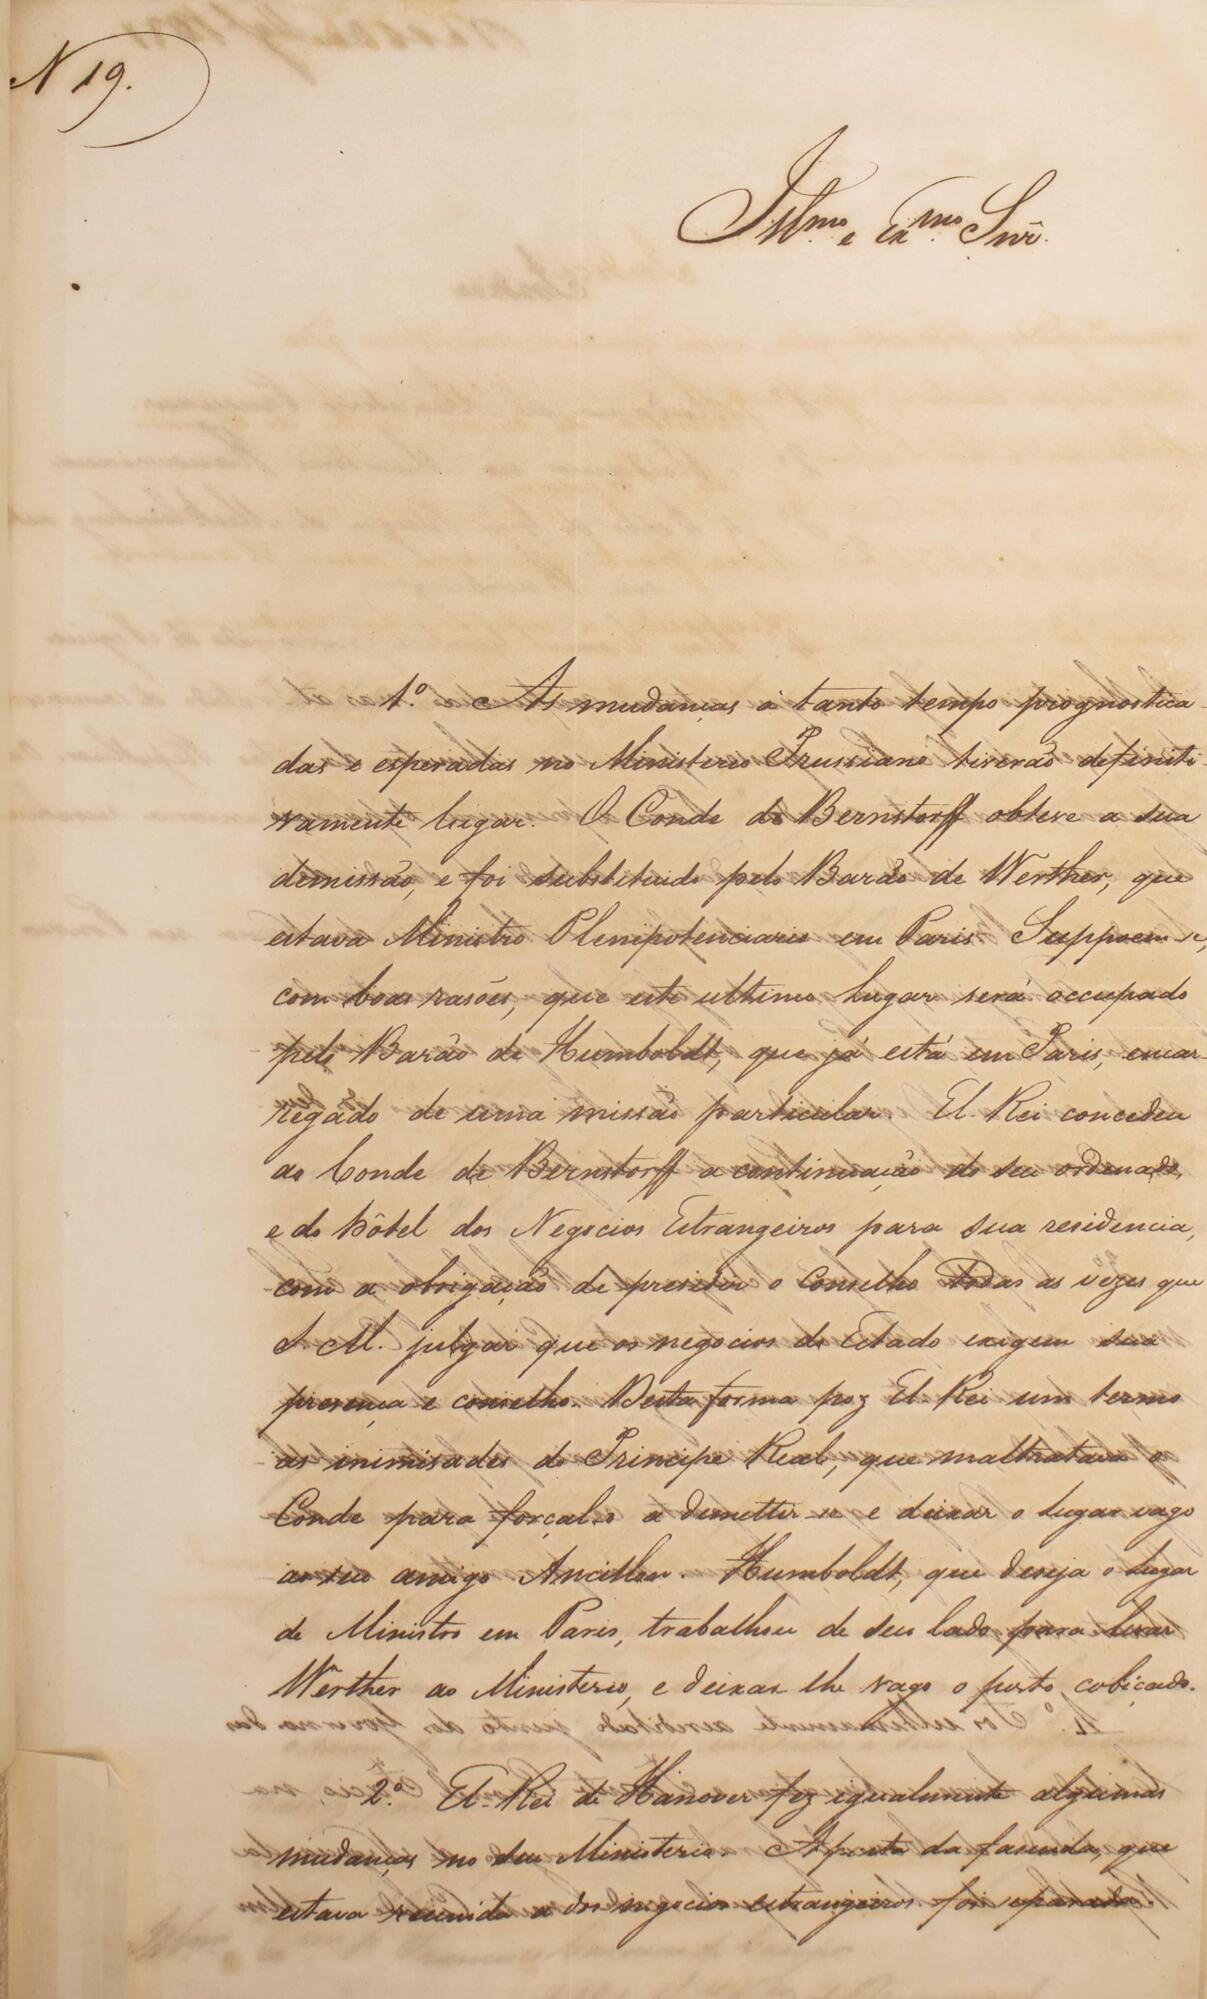 N 19.
Illmo. e Exmo. Snr̃.
1.º As mudanças a tanto tempo prognostica-
das e esperadas no Ministerio Prussiano tiverão definiti-
vamente lugar. O Conde de Bernstorff obteve a sua
demissão, e foi substituido pelo Barão de Werther, que
estava Ministro Plenipotenciario em Paris. Suppoem-se,
com boas rasões, que este ultimo lugar será occupado
pelo Barão de Humboldt, que já está em Paris, encar-
regado de uma missão particular. El-Rei concedeu
ao Conde de Bernstorff a continuação do seu ordenado,
e do hôtel dos Negocios Estrangeiros para sua residencia,
com a obrigação de presidir o Conselho todas as vezes que
S. M. julgar que os negocios do Estado exigem sua
presença e conselho. Desta forma poz El-Rei um termo
as inimisades do Principe Real, que maltratava o
Conde para forçal-o a demittir-se e deixar o lugar vago
ao seu amigo Ancillon. Humboldt, que deseja o lugar
de Ministro em Paris, trabalhou de seu lado para levar
Werther ao Ministerio, e deixar-lhe vago o posto cobiçado.
2.º El-Rei de Hanover fez igualmente algumas
mudanças no seu Ministerio. A pasta da fasenda, que
estava reunida a dos negocios estrangeiros foi separada